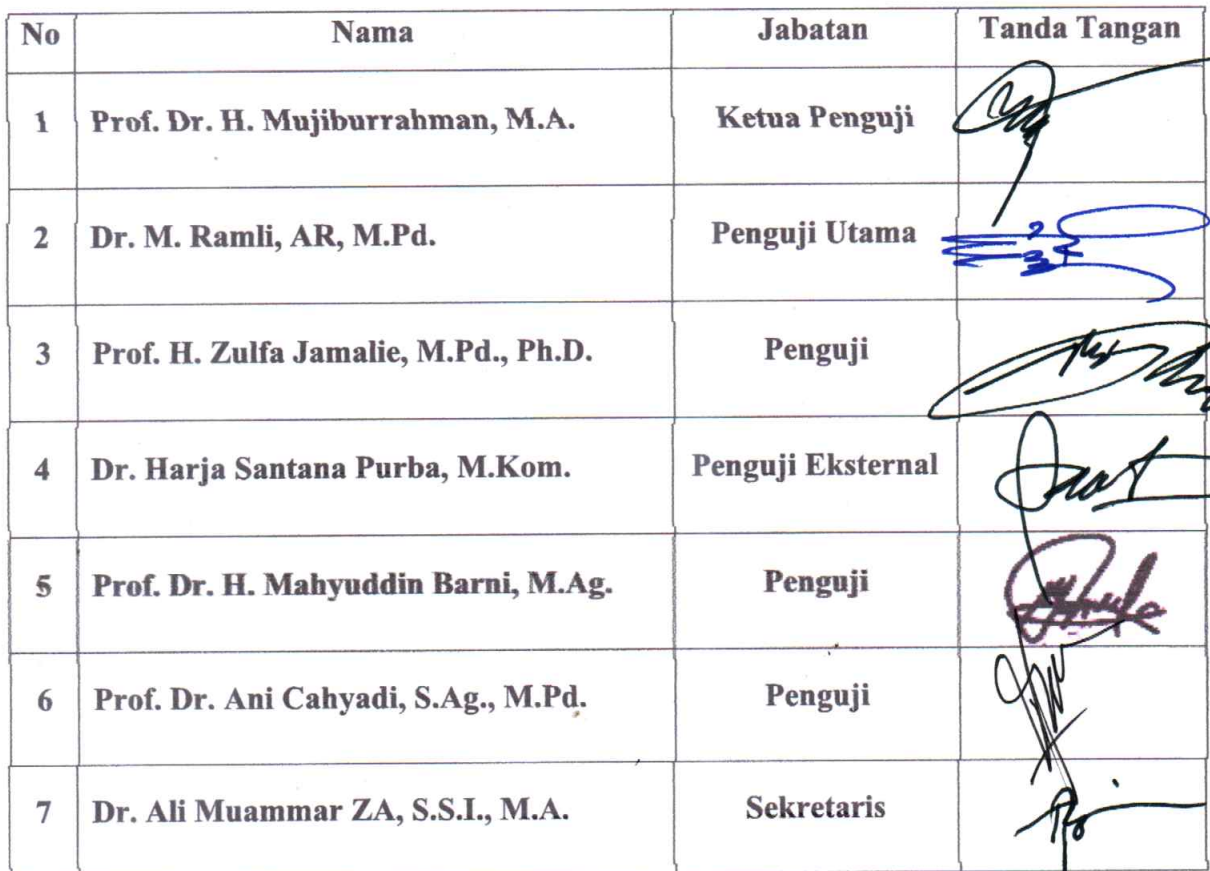 No Nama Jabatan Tanda Tangan
1 Prof. Dr. H. Mujiburrahman, M.A. Ketua Penguji
2 Dr. M. Ramli, AR, M.Pd. Penguji Utama
3 Prof. H. Zulfa Jamalie, M.Pd., Ph.D. Penguji
4 Dr. Harja Santana Purba, M.Kom. Penguji Eksternal
5 Prof. Dr. H. Mahyuddin Barni, M.Ag. Penguji
6 Prof. Dr. Ani Cahyadi, S.Ag., M.Pd. Penguji
7 Dr. Ali Muammar ZA, S.S.I., M.A. Sekretaris